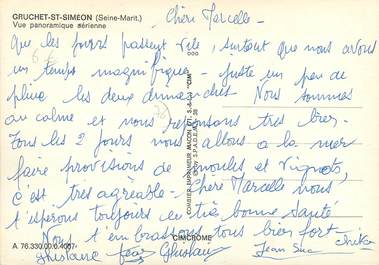 GRUCHET-ST-SIMÉON (Seine-Marit.)
Vue panoramique aérienne
Chère Marcelle -
que les jours passent vite, surtout que nous avons
un temps magnifique - juste un peu de
pluie les deux dimanches - Nous sommes
au calme et nous reposons très bien.
Tous les 2 jours nous allons à la mer
faire provisions de moules et vignots,
c'est très agréable - Chère Marcelle nous
t'espérons toujours en très bonne santé
Nous t'embrassons tous bien fort -
Ghislaine Ghislain Jean Luc
COMBIER IMPRIMEUR MACON
"CIM"
S.P.A.D.E.M.
CIMCROME
A 76.330.00.0.4007